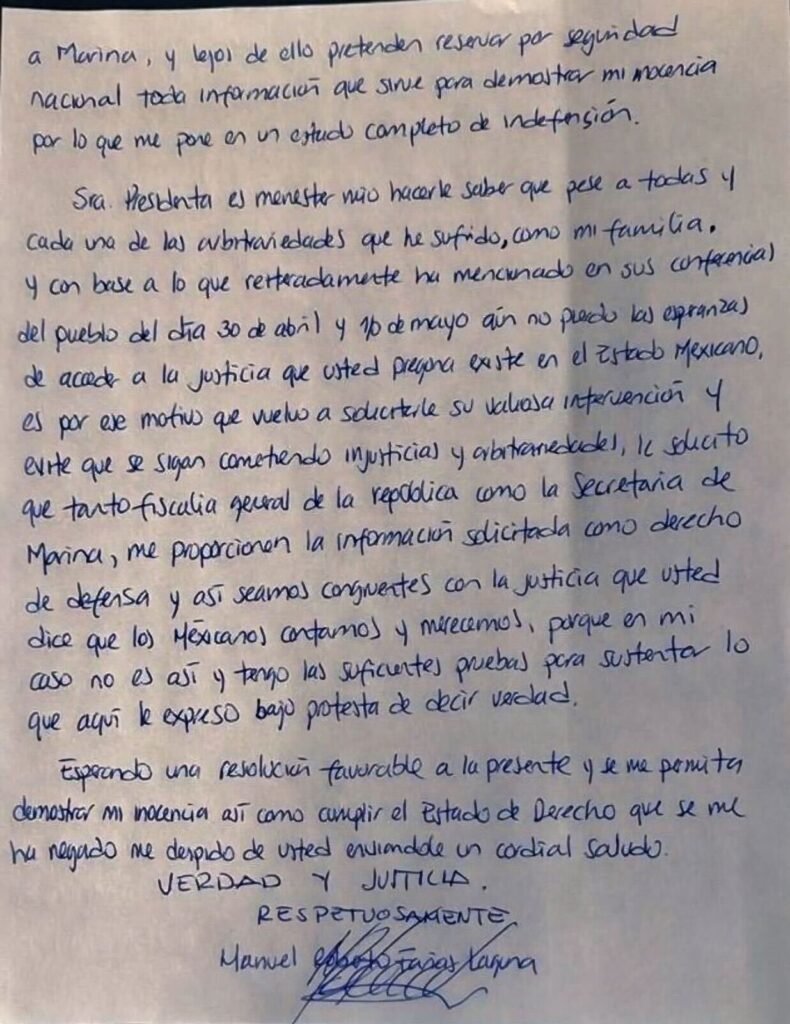 a Marina, y lejos de ello pretenden reservar por seguridad
nacional toda información que sirve para demostrar mi inocencia
por lo que me pone en un estado completo de indefensión.
Sra. Presidenta es menester mio hacerle saber que pese a todas y
cada una de las arbitrariedades que he sufrido, como mi familia.
y con base a lo que reiteradamente ha mencionado en sus conferencias
del pueblo del día 30 de abril y de mayo aún no pierdo las esperanzas
de acceder a la justicia que usted pregona existe en el Estado Mexicano,
es por ese motivo que vuelvo a solicitarle su valiosa intervención y
evite que se sigan cometiendo injusticias y arbitrariedades, le solicito
que tanto fiscalia general de la república como la Secretaria de
Marina, me proporcionen la información solicitada como derecho
de defensa y así seamos congruentes con la justicia que usted
dice que los Méxicanos contamos y merecemos, porque en mi
caso no es así y tengo las suficientes pruebas para sustentar lo
que aquí le expreso bajo protesta de decir verdad.
Esperando una resolución favorable a la presente y se me permita
demostrar mi inocencia así como cumplir el Estado de Derecho que se me
ha negado me despido de usted enviandole un cordial saludo.
VERDAD Y JUSTICIA.
RESPETUOSAMENTE.
Manuel Roberto Farias Laguna